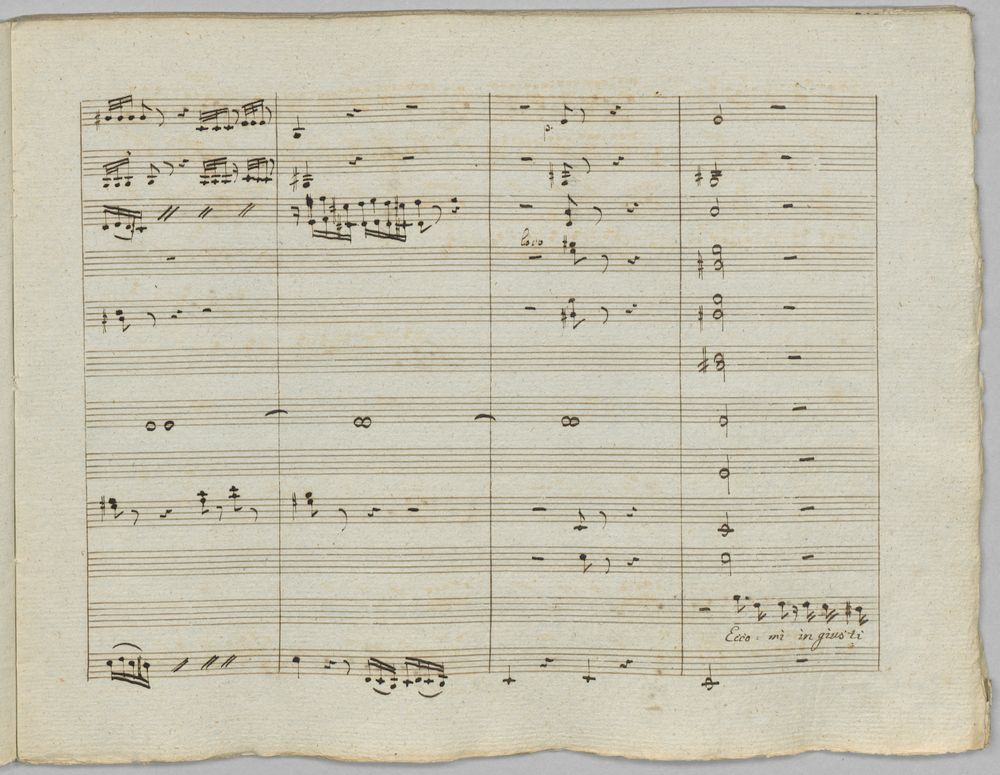 p.
loco
Ecco mi in giusti